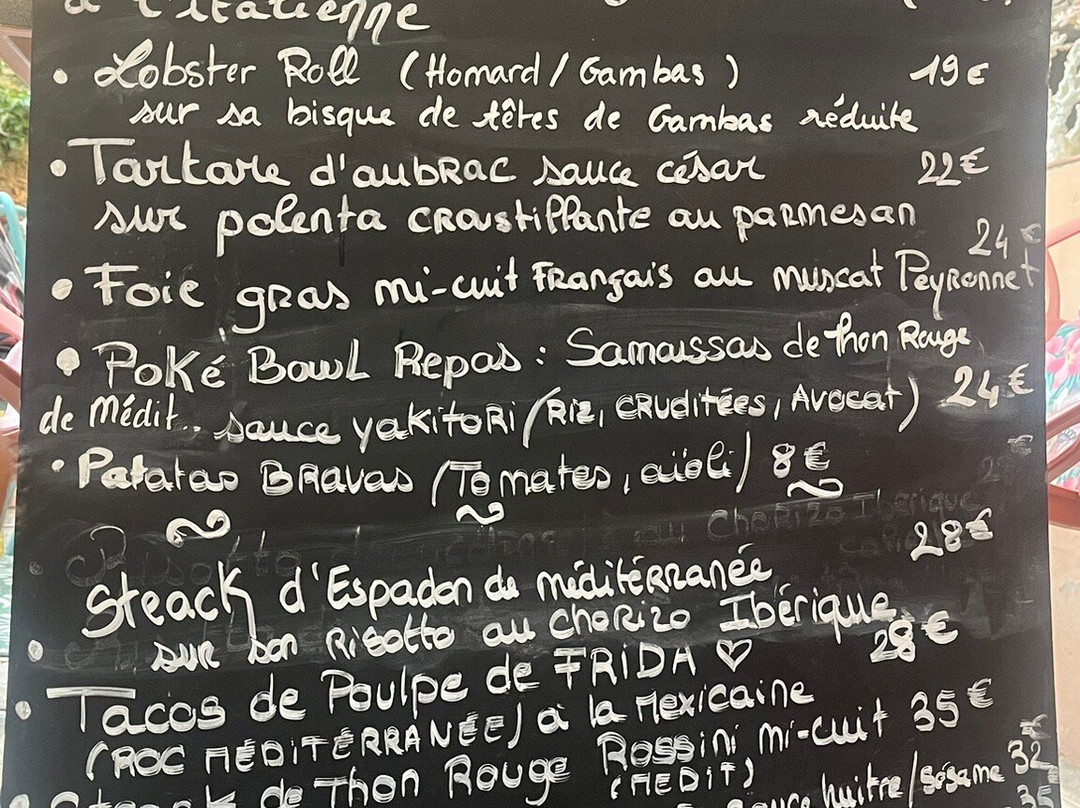 à l'italienne
• Lobster Roll (Homard/Gambas) 19€
sur sa bisque de têtes de Gambas réduite
• Tartare d'aubrac sauce césar 22€
sur polenta croustillante au parmesan
24€
• Foie gras mi-cuit Français au muscat Peyronnet
• Poké Bowl Repas : Samoussas de thon Rouge
de Médit.. sauce yakitori (Riz, cruditées, Avocat) 24€
• Patatas Bravas (Tomates, aïoli) 8€
Risotto au Chorizo Ibérique
28€
Steack d'Espadon de méditérrannée
• sur son Risotto au Chorizo Ibérique
28€
• Tacos de Poulpe de FRIDA ♡
(ROC MÉDITÉRRANÉE) à la Mexicaine
Steack de Thon Rouge Rossini mi-cuit 35€
(MEDIT)
huitre/sésame 32€